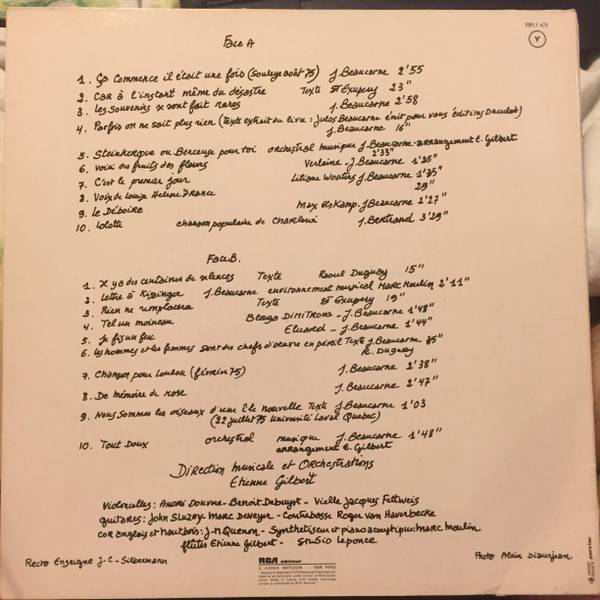 YBPL1 475
Y
Face A
1. ça commence il était une fois (Soulège août 75) J. Beaucarne 2'55
2. Car à l'instant même du désastre Texte St Exupery 23"
3. Les souvenirs se sont fait rares J. Beaucarne 2'58
4. Parfois on ne sait plus rien (texte extrait du livre : Julos Beaucarne écrit pour vous éditions Duculot)
J. Beaucarne 16"
5. Steinkerque ou Berceuse pour toi orchestral musique J. Beaucarne-arrangement E. Gilbert
2'33"
6. voici des fruits des fleurs Verlaine - J. Beaucarne 1'35"
7. C'est le premier jour Liliane Wouters J. Beaucarne 1'35"
8. Voix de Louise Helene France 29"
9. Le Déboire Max Elskamp. J. Beaucarne 2'27"
10. Lolotte chanson populaire de Charleroi J. Bertrand 3'29"
Face B.
1. il y a des centaines de silences Texte Raoul Duguay 15"
2. Lettre à Kissinger J. Beaucarne environnement musical Marc Moulin 2'11"
3. Rien ne remplacera Texte St Exupery 19"
4. Tel un moineau Blaga Dimitrova - J. Beaucarne 1'48"
5. Je fis un feu Eluard - J. Beaucarne 1'44"
6. Les hommes et les femmes sont des chefs d'oeuvre en péril Texte J. Beaucarne 35"
R. Duguay
7. Chanson pour Loulou (février 75) J. Beaucarne 2'38"
8. De mémoire de rose J. Beaucarne 2'47"
9. Nous sommes les oiseaux d'une île nouvelle Texte J. Beaucarne 1'03
(22 juillet 75 Université Laval Quebec)
10. Tout Doux orchestral musique J. Beaucarne 1'48"
arrangement E. Gilbert
Direction musicale et Orchestrations
Etienne Gilbert
Violoncelles: André Douvne - Benoit Debuyst - Vielle Jacques Fettweis
guitares: John Sluszny Marc Deneyer - Contrebasse Roger van Haverbecke
cor anglais et hautbois: J-M. Quenon - Synthetiseur et piano acoustique: Marc Moulin
flûtes Etienne Gilbert - Studio Leponce
Recto Enseigne J-C-Silbermann
RCA éditeur
9, AVENUE MATIGNON - 75008 PARIS
Photo Alain